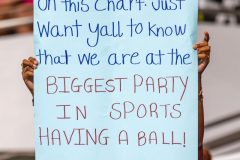 On this Chart. Just
Want yall to know
that we are at the
BIGGEST PARTY
IN SPORTS
HAVING A BALL!